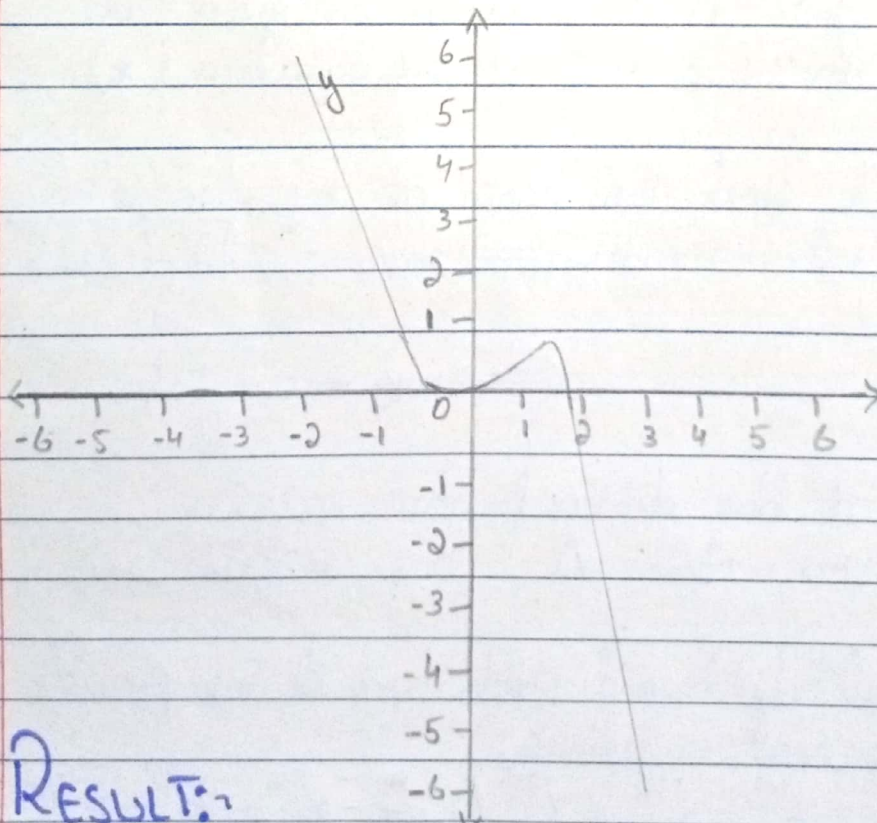 6
y
5
4
3
2
1
0
-6 -5 -4 -3 -2 -1 1 2 3 4 5 6
-1
-2
-3
-4
-5
-6
RESULT:-